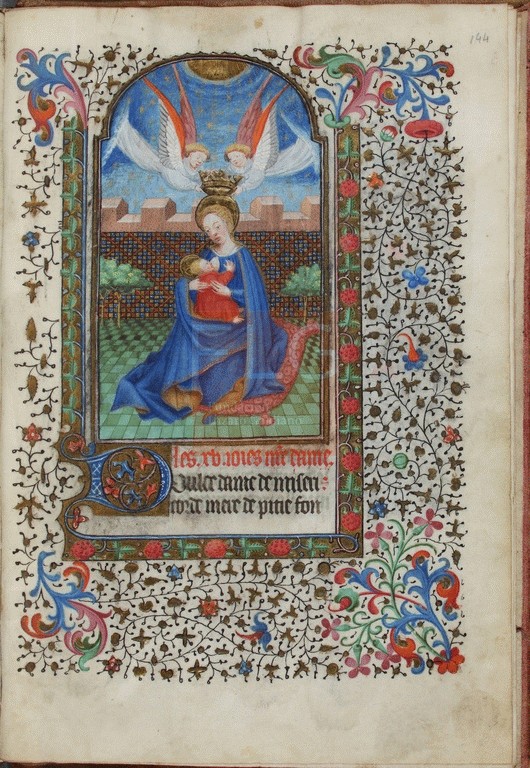 144
Les. xv. ioies nr̃e dame.
Doulce dame de miseri
corde mere de pitie fon